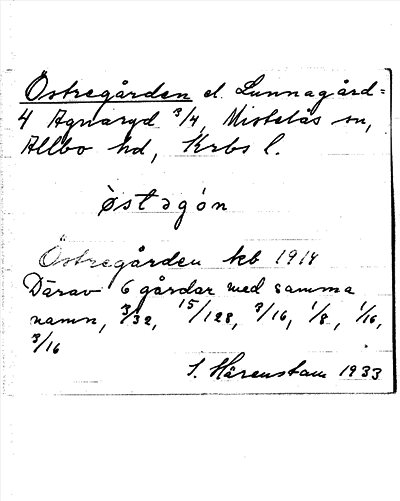 Östregården el. Lunnagård=
4 Agnaryd 3/4, Mistelås sn,
Allbo hd, Krbs l.
östəgón
Östregården kb 1914
Därav 6 gårdar med samma
namn, 3/32, 15/128, 3/16, 1/8, 1/16,
3/16
S. Hårenstam 1933